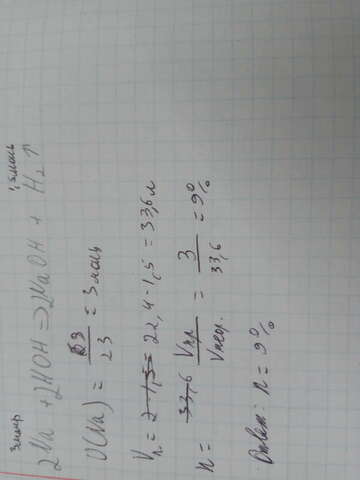 3моль 1,5моль
2Na + 2HOH => 2NaOH + H₂↑
υ(Na) = 69/23 = 3 моль
Vп = 2 · 1,5 = 22,4 · 1,5 = 33,6 л
n = 33,6 Vпр/Vтеор. = 3/33,6 = 9%
Ответ: n = 9%